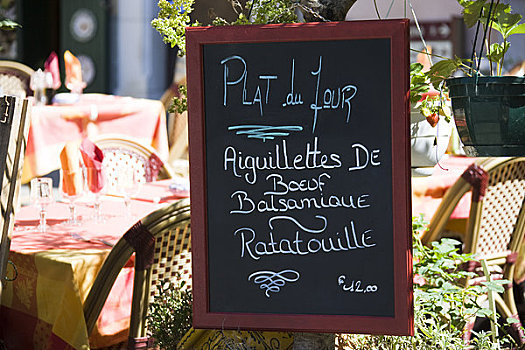 Plat du Jour
Aiguillettes De
Bœuf
Balsamique
Ratatouille
€12,00